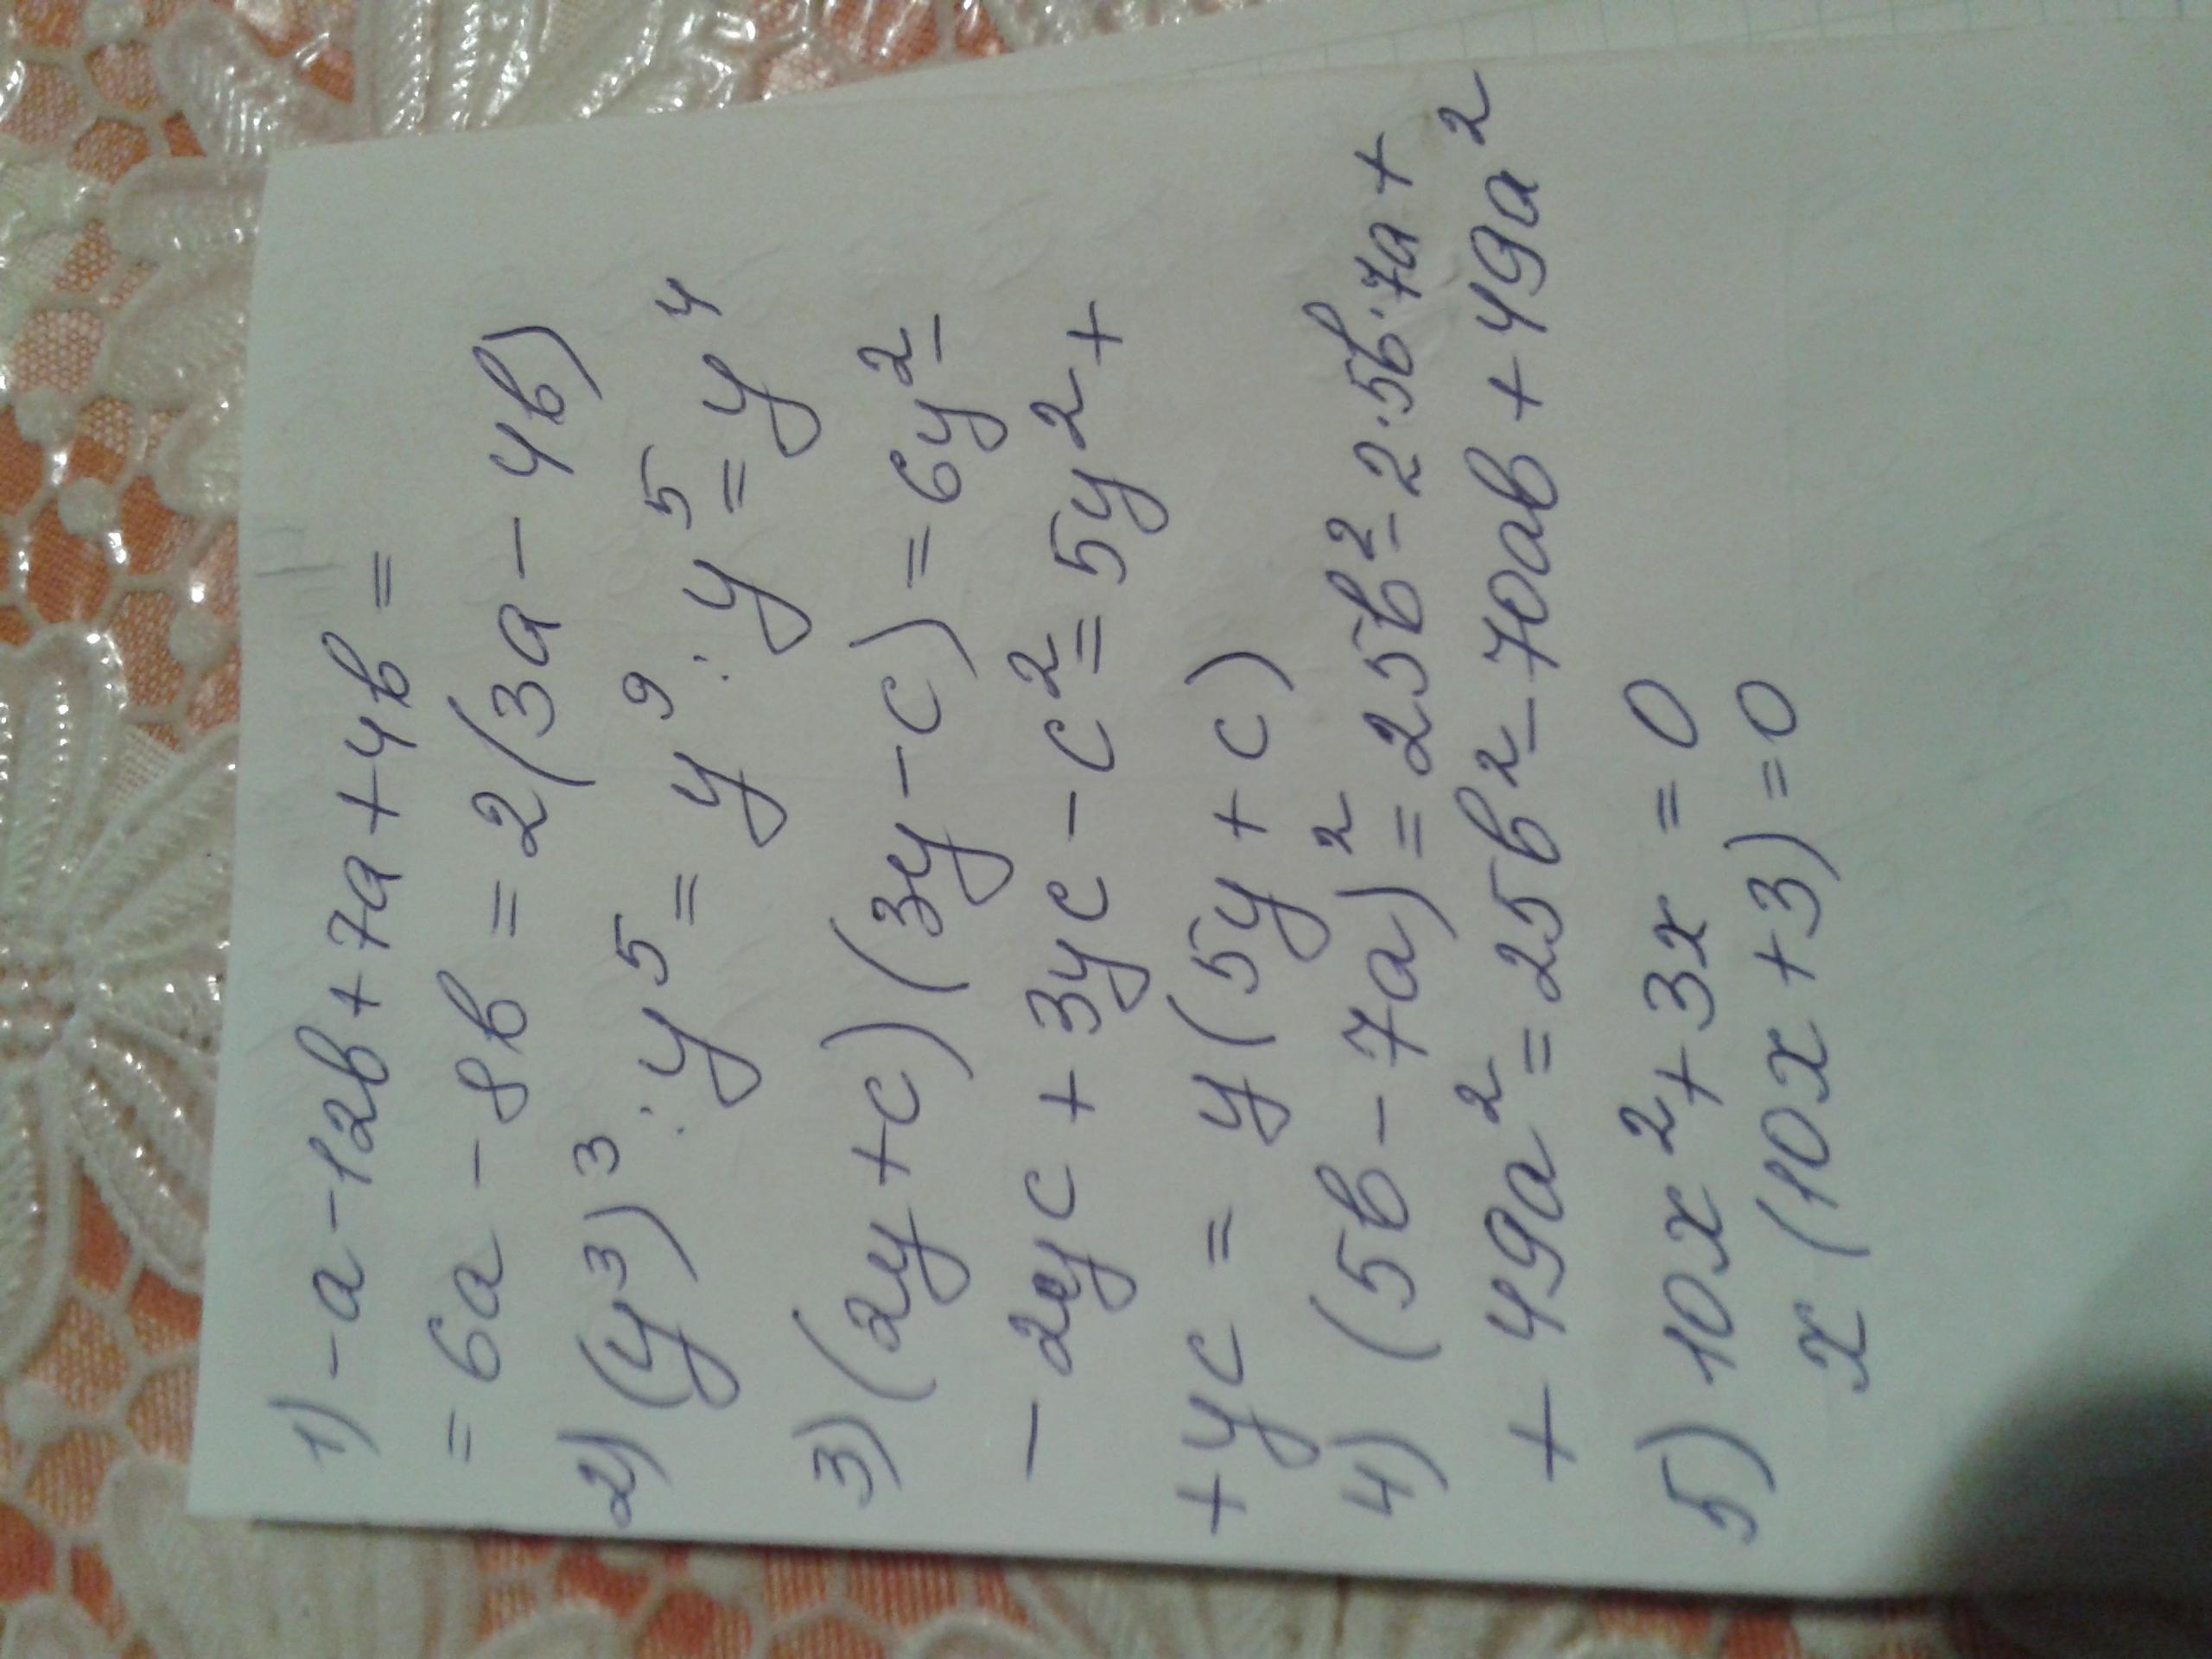 1) -a-12b+7a+4b=
= 6a - 8b = 2(3a - 4b)
2) (y³)³ : y⁵ = y⁹ : y⁵ = y⁴
3) (2y+c)(3y-c) = 6y² -
- 2yc + 3yc - c² = 5y² +
+ yc = y(5y+c)
4) (5b-7a)² = 25b² - 2·5b·7a +
+ 49a² = 25b² - 70ab + 49a²
5) 10x² + 3x = 0
x(10x+3) = 0